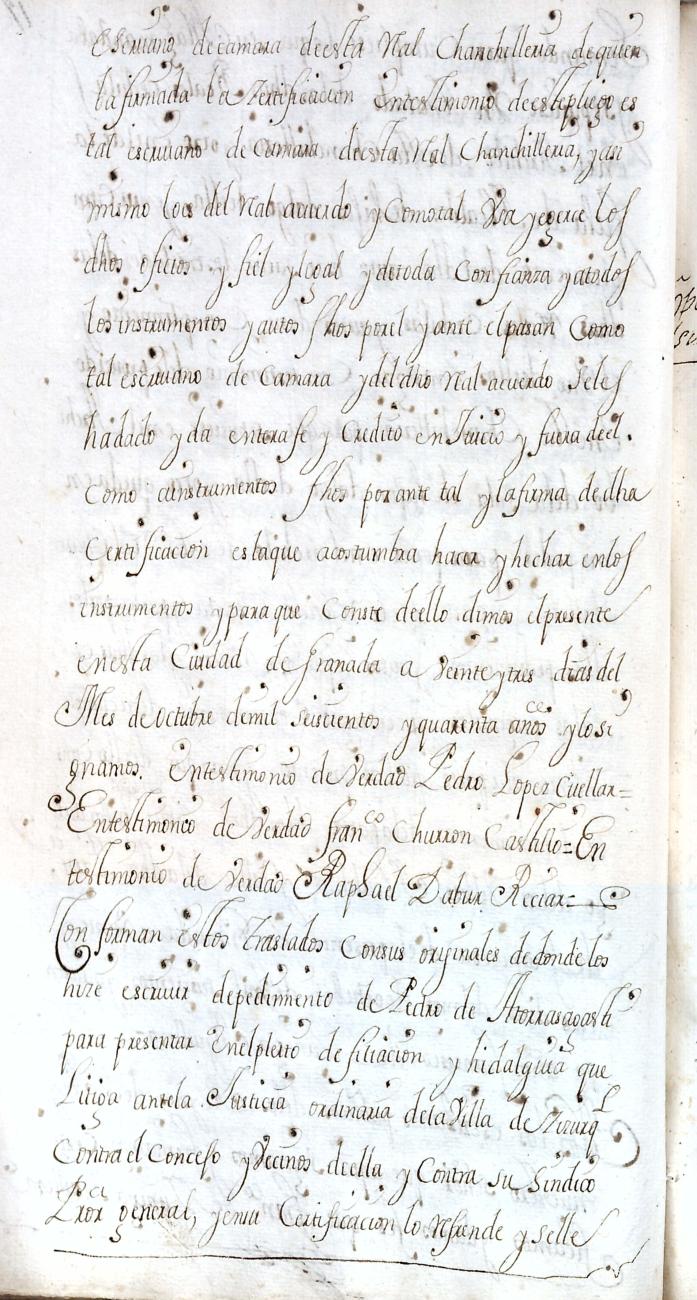 escriuano de camara de esta Real Chanchilleria de quien
ba firmada la zertificacion en testimonio de este pliego es
tal escriuano de Camara de esta Real Chanchilleria, y asi
mismo lo es del Real acuerdo y Como tal Vsa y egerce los
dhos oficios y fiel y legal y de toda Confianza y a todos
los instrumentos y autos fhos por el y ante el pasan Como
tal escriuano de Camara y del dho Real acuerdo se les
ha dado y da entera fe y Credito en Juicio y fuera de el.
Como a instrumentos fhos por ante tal y la firma de dha
Certificacion es la que acostumbra hacer y hechar en los
instrumentos y para que Conste de ello dimos el presente
en esta Ciudad de Granada a Veinte y tres dias del
Mes de octubre de mil seiscientos y quarenta años y lo si
gnamos. En testimonio de Verdad Pedro Lopez Cuellar=
En testimonio de Verdad Franco Churron Castillo= En
testimonio de Verdad Raphael Dabur Reciar=
Con forman estos traslados Con sus originales de donde los
hize escriuir de pedimento de Pedro de Atorrasagasti
para presentar en el pleito de filiacion y hidalguia que
Litiga ante la Justicia ordinaria de la Villa de Zizurql
Contra el Concejo y Vecinos de ella y Contra su Sindico
Pror general, y en mi Certificacion lo Refrende y selle